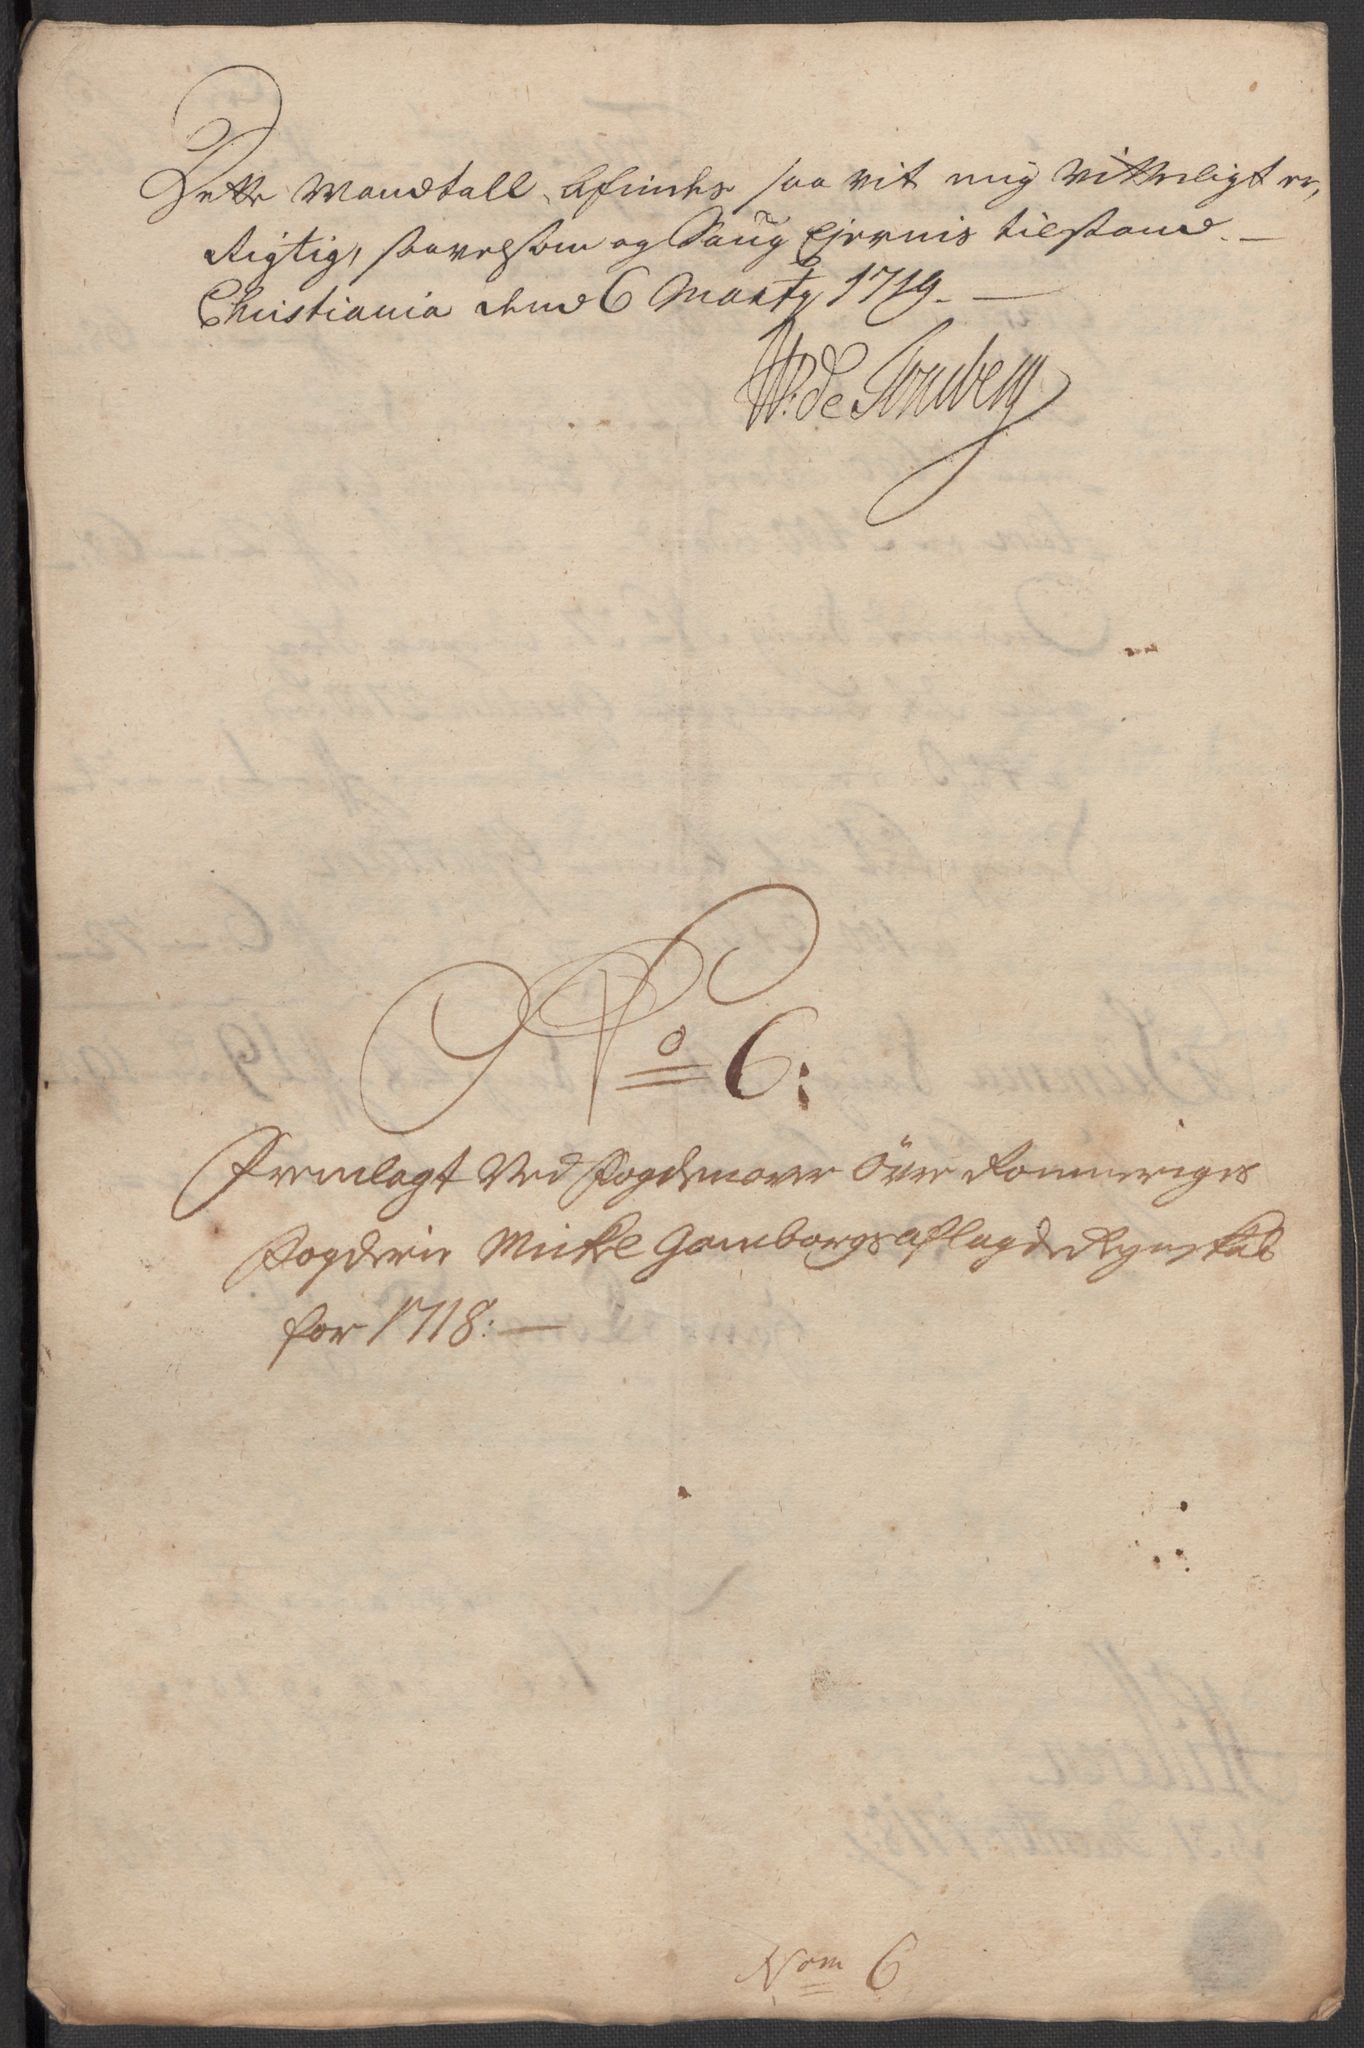 Dette Mandtall, befindes saa vit mig Vitterligt er,
Rigtig, saavelsom og Saug Ejernis tilstand. —
Christiania dend 6 Marty 1719. —
W: de Tonsberg
No 6:
Fremlagt Ved Fogden over Övre Rommeriges
Fogderie Mickel Gamborgs aflagde Regnskab
for 1718: —
Nom 6